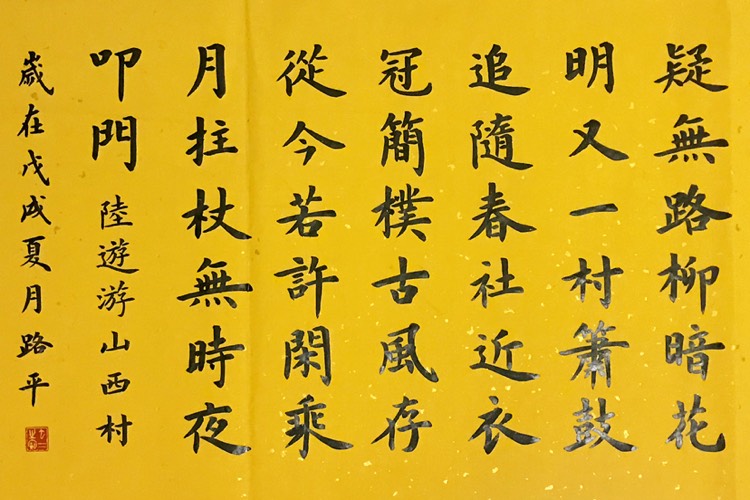 疑無路柳暗花
明又一村簫鼓
追隨春社近衣
冠簡樸古風存
從今若許閑乘
月拄杖無時夜
叩門 陸遊游山西村
歲在戊戌夏月路平